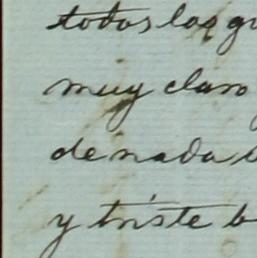 todos los
muy claro
de nada
y triste